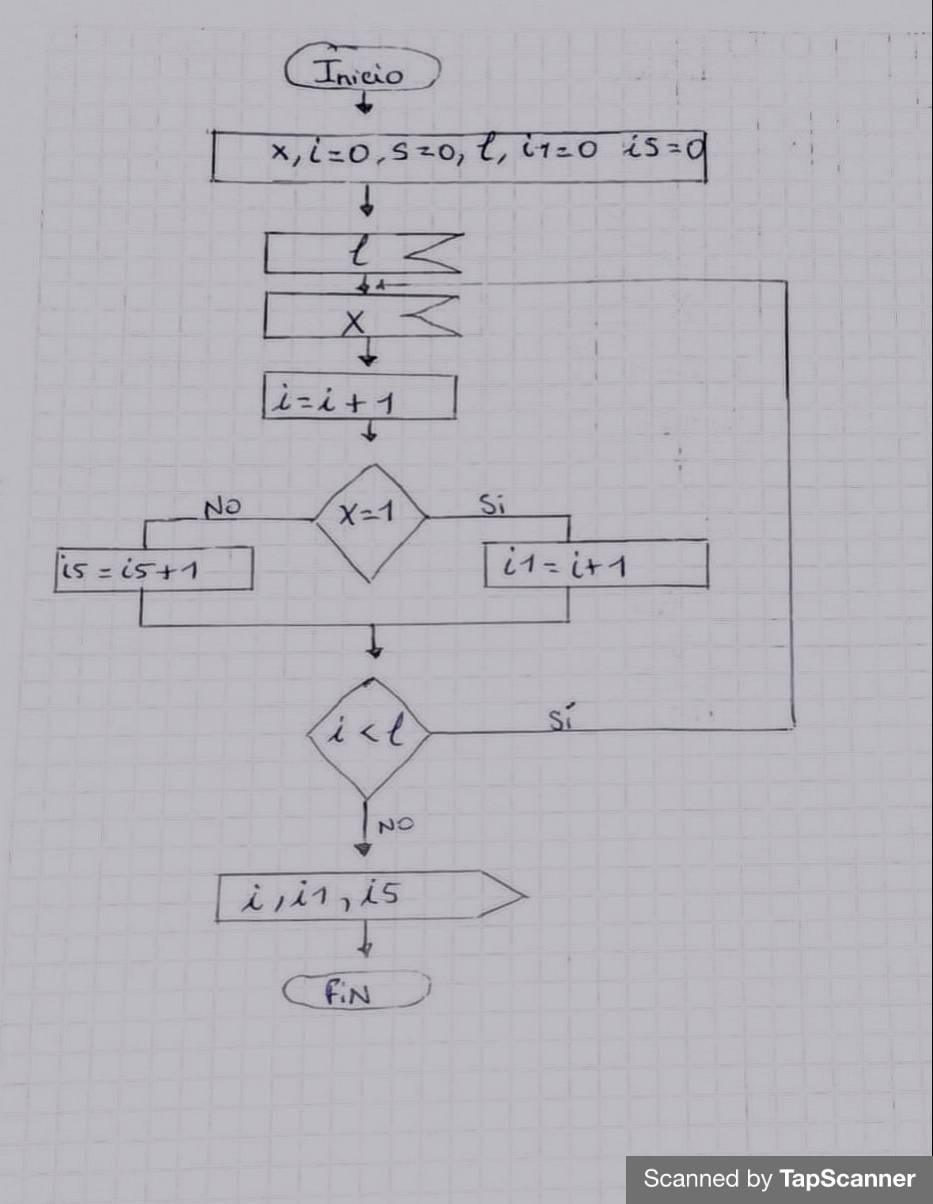 Inicio
x, i=0, s=0, l, i1=0 i5=0
l
x
i=i+1
NO
x=1
Si
i5=i5+1
i1=i+1
i<l
Sí
NO
i, i1, i5
FiN
Scanned by TapScanner